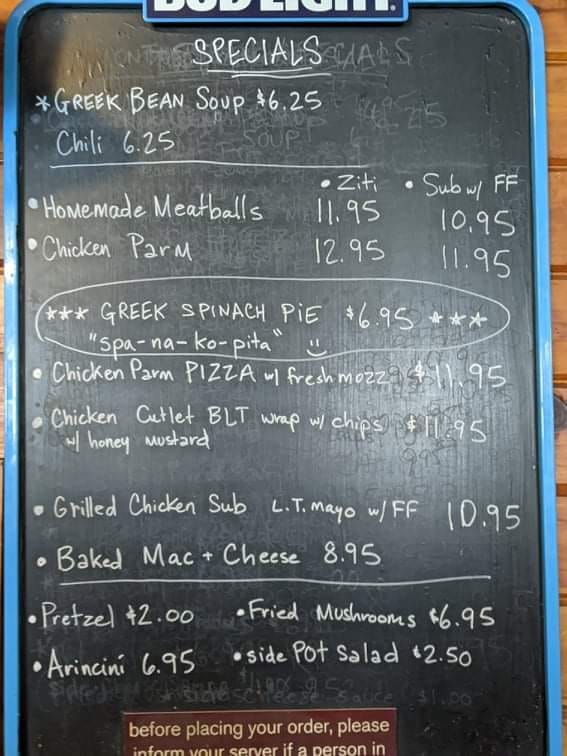 BUD LIGHT.
SPECIALS
*GREEK BEAN SOUP $6.25
Chili 6.25
• Ziti • Sub w/ FF
• Homemade Meatballs 11.95 10.95
• Chicken Parm 12.95 11.95
*** GREEK SPINACH PiE $6.95 ***
"spa-na-ko-pita"
• Chicken Parm PIZZA w/ fresh mozz $11.95
• Chicken Cutlet BLT wrap w/ chips $11.95
w/ honey mustard
• Grilled Chicken Sub L.T. mayo w/ FF 10.95
• Baked Mac + Cheese 8.95
• Pretzel $2.00 • Fried Mushrooms $6.95
• Arincini 6.95 • side POT Salad $2.50
before placing your order, please
inform your server if a person in